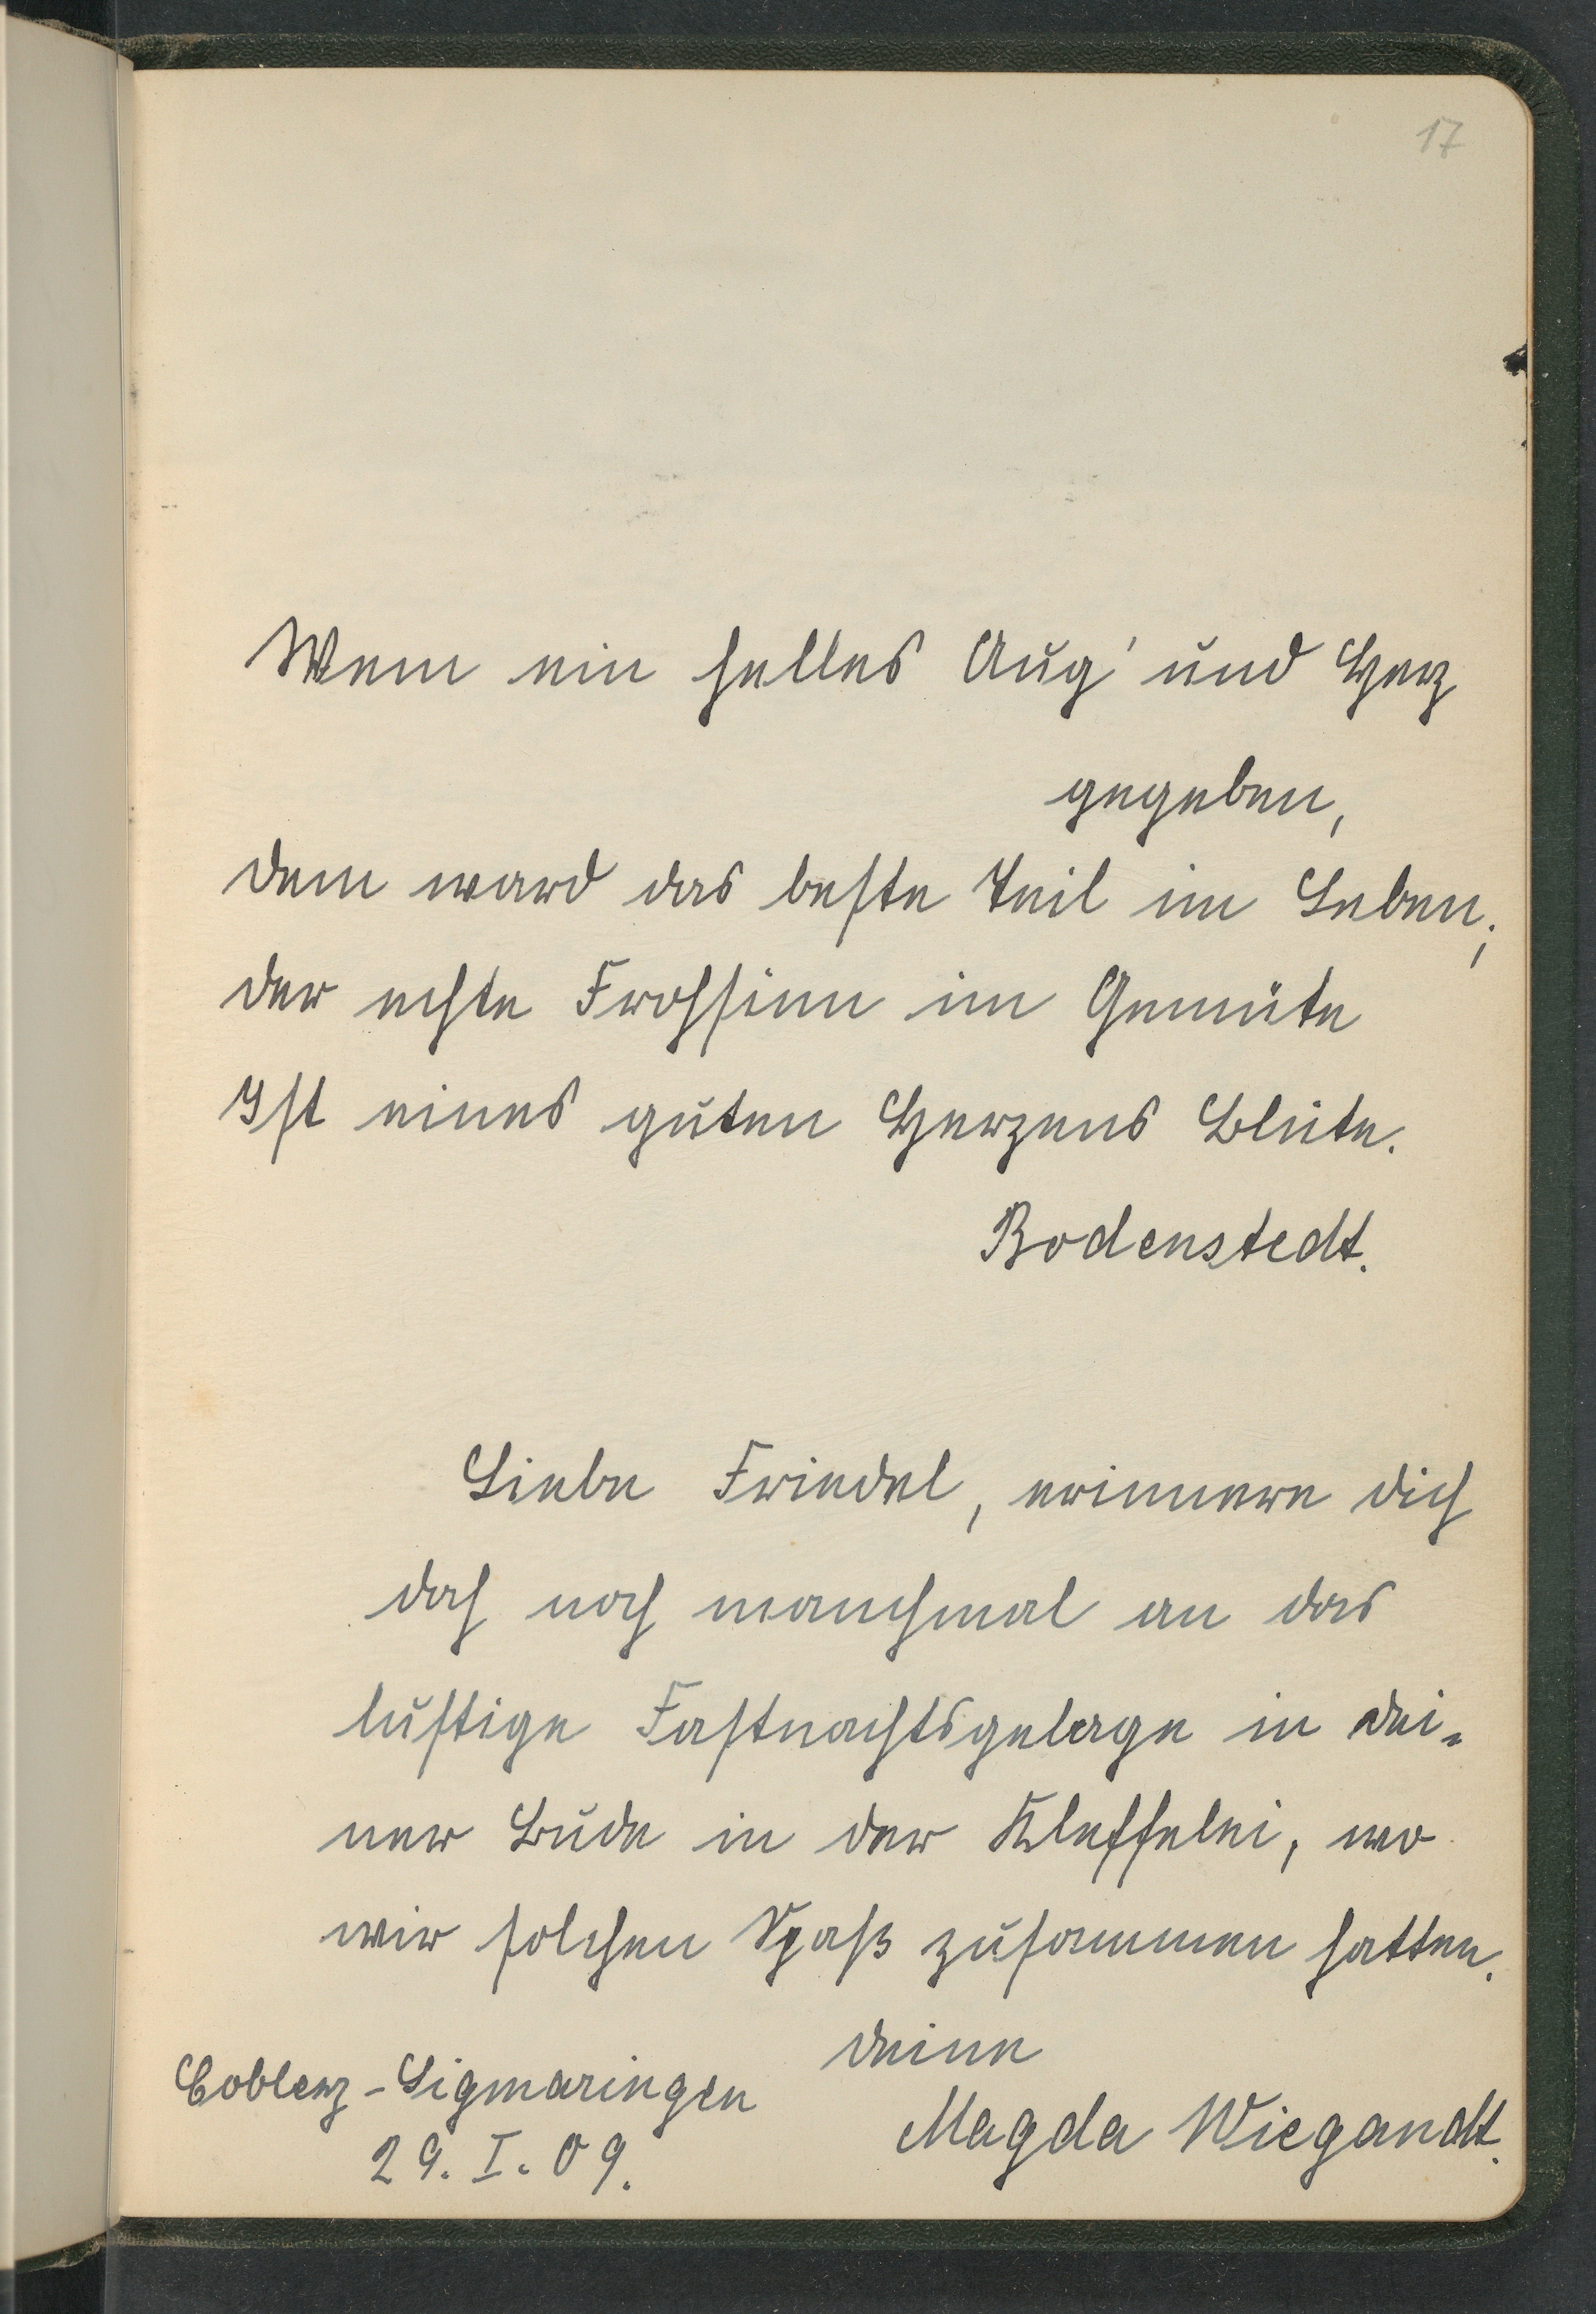 17
Wem ein helles Aug' und Herz
gegeben,
dem ward das beste Teil im Leben;
der echte Frohsinn im Gemüte
Ist eines guten Herzens Blüte.
Bodenstedt.
Liebe Friedel, erinnere dich
doch noch manchmal an das
lustige Fastnachtsgelage in dei-
ner Bude in der Kleffelei, wo
wir solchen Spaß zusammen hatten.
deine
Coblenz-Sigmaringen
Magda Wiegandt.
29. I. 09.